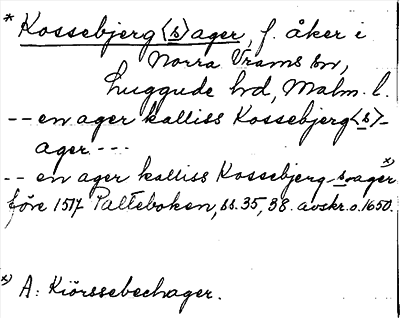 * Kossebjerg<s>ager, f. åker i
Norra Vrams sn,
Luggude hd, Malm. l.
-- en ager kalliss Kossebjerg<s>-
ager ---
-- en ager kalliss Kossebjerg sager x)
före 1517 Palteboken, ss. 35, 38. avskr. o. 1650.
x) A: Kiörssebechager.